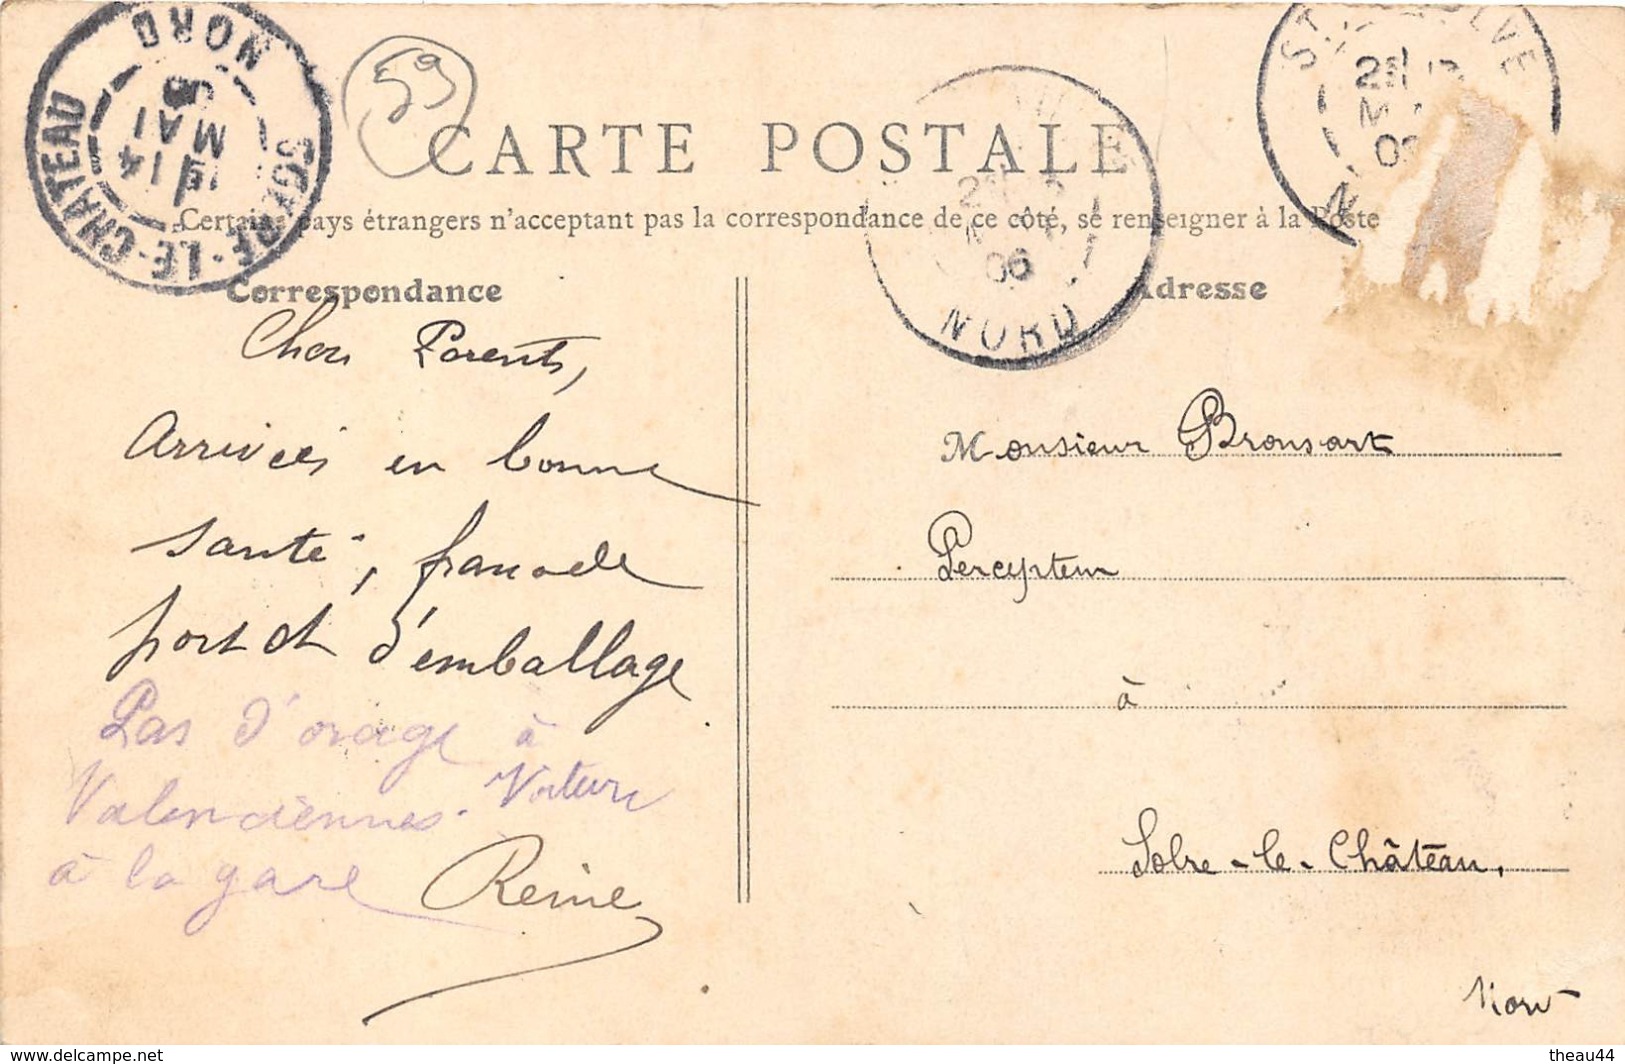 SOLRE-LE-CHATEAU
15
14
MAI
06
NORD
59
CARTE POSTALE
Certains pays étrangers n'acceptant pas la correspondance de ce côté, se renseigner à la Poste
06
NORD
ST
LVE
Correspondance
Chers Parents,
Arrivées en bonne
santé, franco de
port et d'emballage
Pas d'orage à
Valenciennes. Voiture
à la gare
Reine
Adresse
Monsieur Bronsart
Percepteur
à
Solre-le-Château,
Nord
www.delcampe.net
theau44